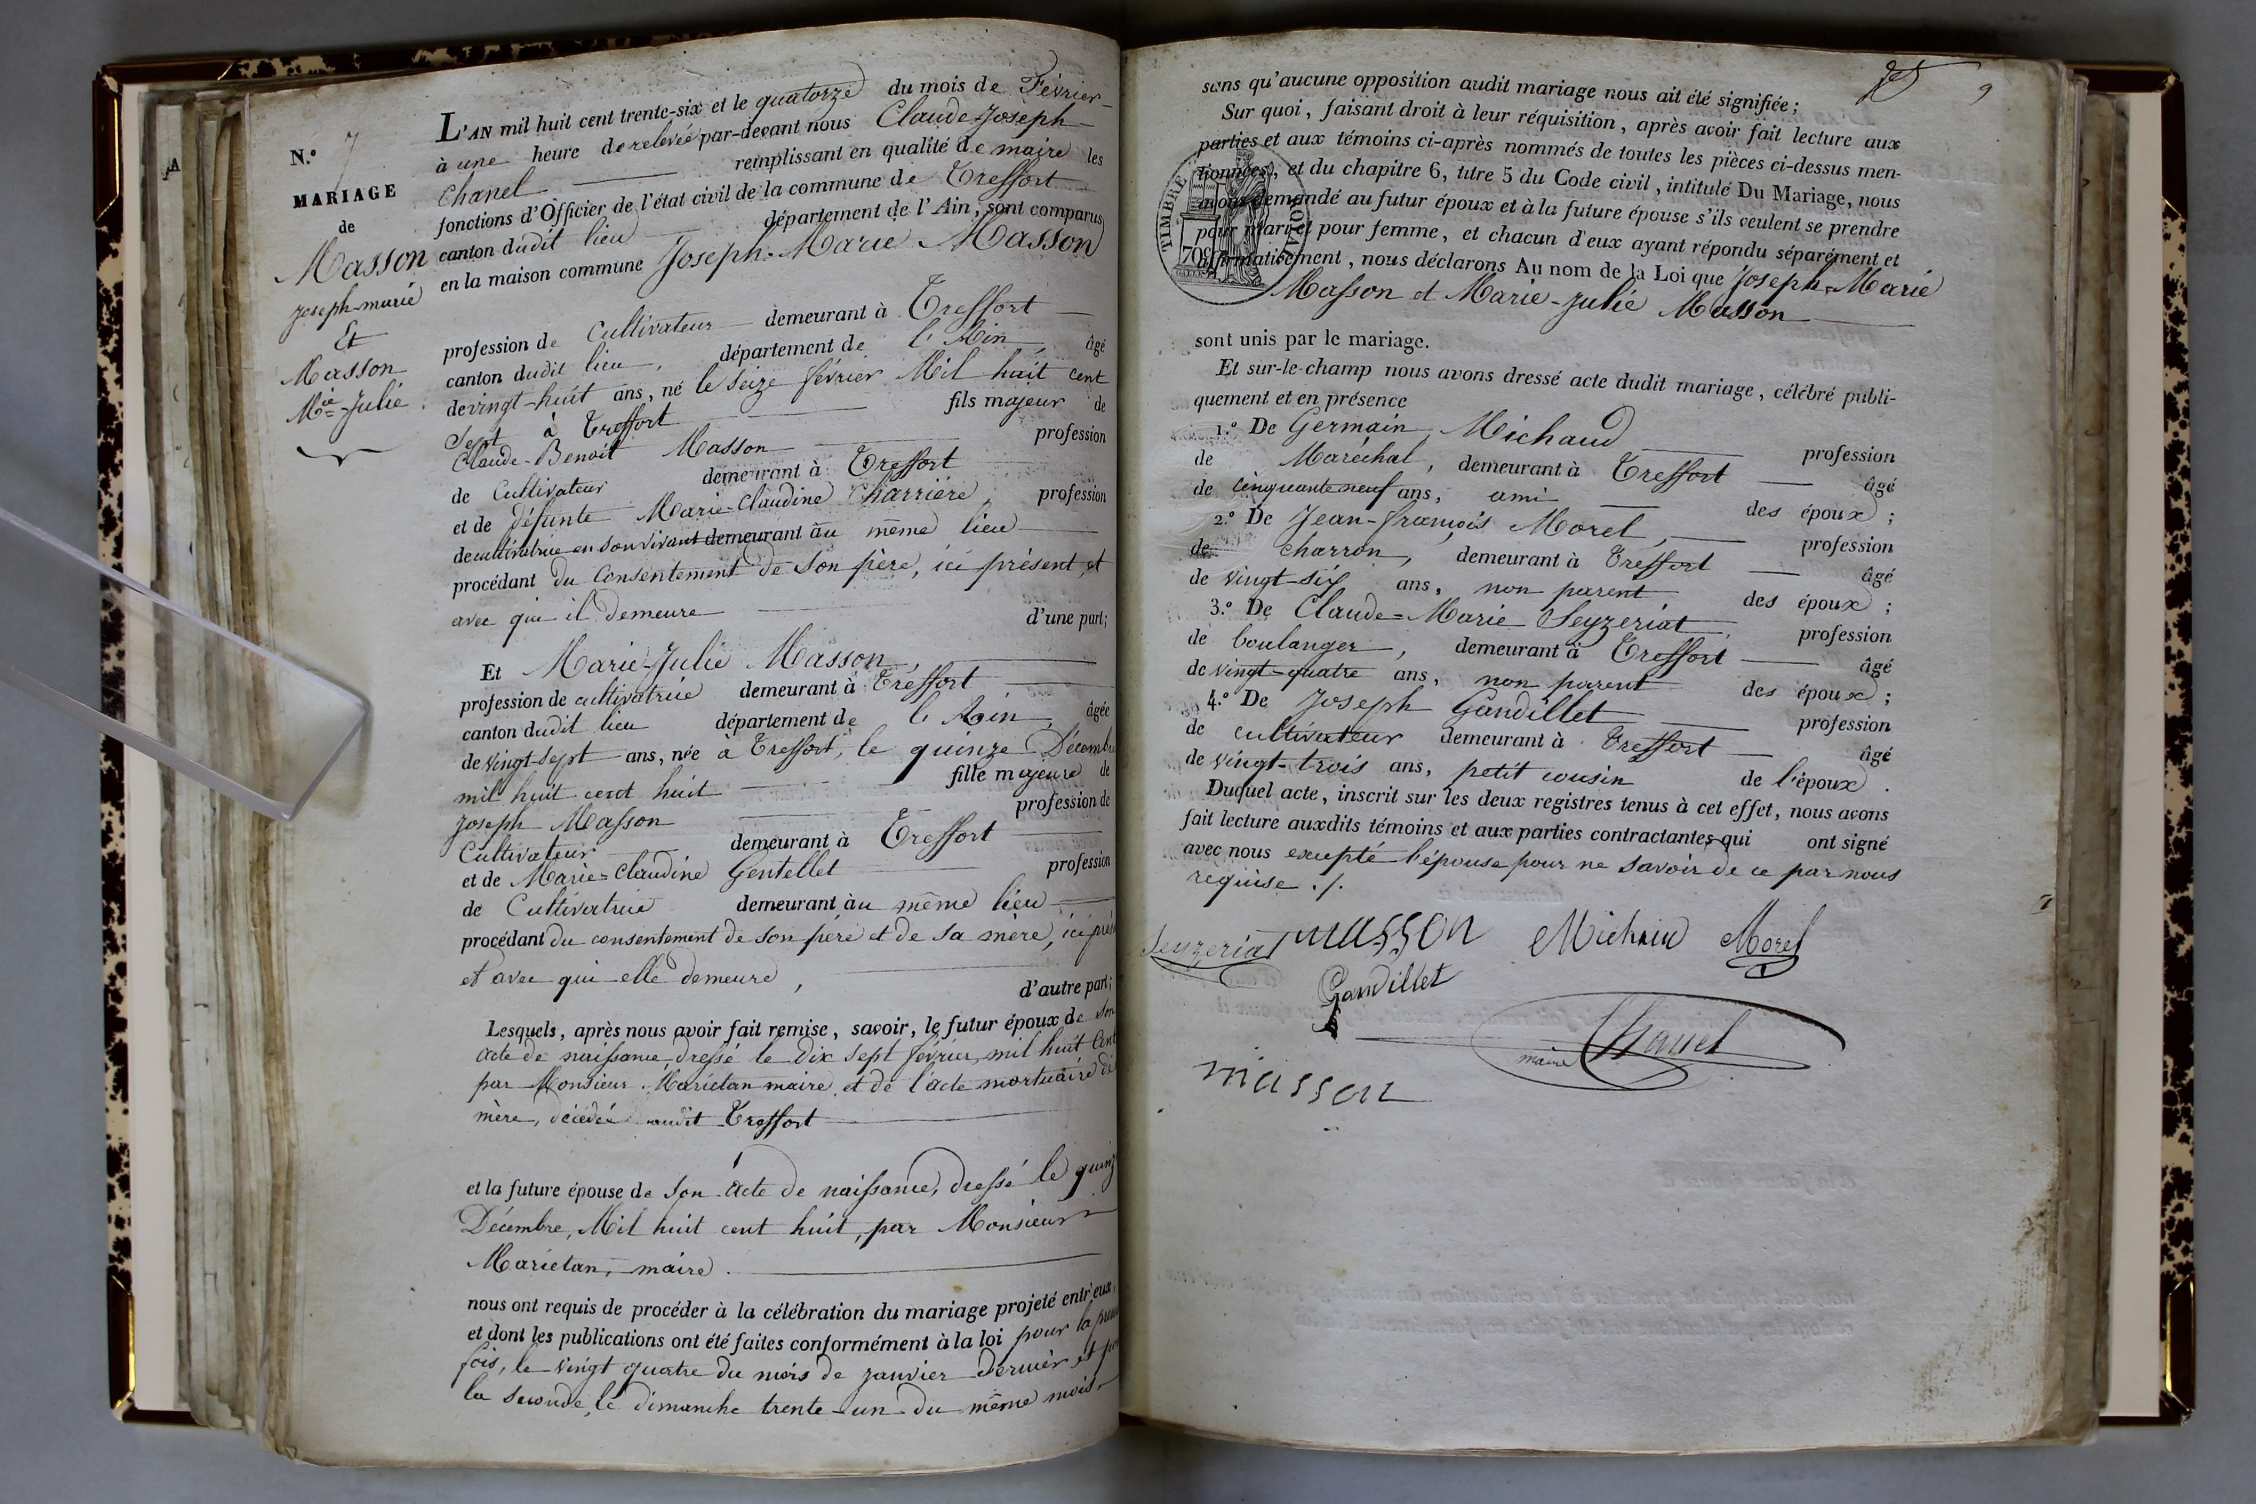 N.º 7
MARIAGE
de
Masson
Joseph-marie
Et
Masson
Mie-Julie
L'AN mil huit cent trente-six et le quatorze du mois de Février
à une heure de relevée par-devant nous Claude-Joseph
Chanel remplissant en qualité de maire les
fonctions d'Officier de l'état civil de la commune de Treffort
canton dudit lieu département de l'Ain, sont comparus
en la maison commune Joseph-Marie Masson
profession de Cultivateur demeurant à Treffort
canton dudit lieu, département de l'Ain, âgé
de vingt-huit ans, né le seize février Mil huit cent
Sept à Treffort fils majeur de
Claude-Benoit Masson profession
de Cultivateur demeurant à Treffort
et de défunte Marie-Claudine Charrière, profession
de cultivatrice en son vivant demeurant au même lieu
procédant du Consentement de Son père, ici présent, et
avec qui il demeure d'une part;
Et Marie-Julie Masson,
profession de cultivatrice demeurant à Treffort
canton dudit lieu département de l'Ain, âgée
de vingt-sept ans, née à Treffort, le quinze Décembre
mil huit cent huit fille majeure de
Joseph Masson profession de
Cultivateur demeurant à Treffort
et de Marie-Claudine Gentellet profession
de Cultivatrice demeurant au même lieu
procédant du consentement de son père et de sa mère, ici
et avec qui elle demeure, d'autre part;
Lesquels, après nous avoir fait remise, savoir, le futur époux de son
acte de naissance dressé le dix sept février, mil huit Cent
par Monsieur Mariétan maire, et de l'acte mortuaire de
mère, décédée audit Treffort
et la future épouse de Son Acte de naissance, dressé le
Décembre, Mil huit cent huit, par Monsieur
Mariétan, maire.
nous ont requis de procéder à la célébration du mariage projeté entr'eux,
et dont les publications ont été faites conformément à la loi pour la
fois, le vingt quatre du mois de janvier dernier et
la seconde, le dimanche trente-un du même mois
9
sans qu'aucune opposition audit mariage nous ait été signifiée;
Sur quoi, faisant droit à leur réquisition, après avoir fait lecture aux
parties et aux témoins ci-après nommés de toutes les pièces ci-dessus men-
tionnées, et du chapitre 6, titre 5 du Code civil, intitulé Du Mariage, nous
avons demandé au futur époux et à la future épouse s'ils veulent se prendre
pour mari et pour femme, et chacun d'eux ayant répondu séparément et
affirmativement, nous déclarons Au nom de la Loi que Joseph-Marie
Masson et Marie-Julie Masson
TIMBRE ROYAL
70 c
sont unis par le mariage.
Et sur-le-champ nous avons dressé acte dudit mariage, célébré publi-
quement et en présence
1.º De Germain Michaud profession
de Maréchal, demeurant à Treffort âgé
de cinquante neuf ans, ami des époux;
2.º De Jean-françois Morel, profession
de charron, demeurant à Treffort âgé
de vingt-six ans, non parent des époux;
3.º De Claude-Marie Seyzeriat, profession
de boulanger, demeurant à Treffort âgé
de vingt-quatre ans, non parent des époux;
4.º De Joseph Gandillet profession
de cultivateur demeurant à Treffort âgé
de vingt-trois ans, petit cousin de l'époux.
Duquel acte, inscrit sur les deux registres tenus à cet effet, nous avons
fait lecture auxdits témoins et aux parties contractantes qui ont signé
avec nous excepté l'épouse pour ne savoir de ce par nous
requise ./.
Seyzeriat masson Michaud Morel
Gandillet
maire Chanel
masson